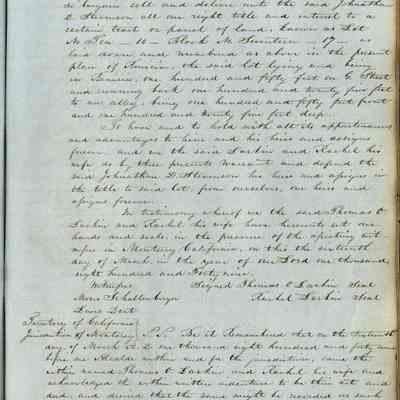 do bargain sell and deliver unto the said Johnathan
D. Stevenson all our right title and interest to a
certain tract or parcel of land, known as Lot
No Ten - 10 - Block No Seventeen - 17 - as
laid down and numbered as above in the present
plan of the said lot lying and being
in Benicia, one hundred and fifty feet on G Street
and running back one hundred and twenty five feet
to an alley, being one hundred and fifty feet front
and one hundred and twenty five feet deep.
To have and to hold with all its appurtenances
and advantages to him and his heirs and assigns
forever and we the said Larkin and Rachel his
wife do by these presents warrant and defend the
said Johnathan D. Stevenson his heirs and assigns in
the title to said lot, from ourselves, our heirs and
assigns forever.
In testimony whereof we the said Thomas O.
Larkin and Rachel his wife have hereunto set our
hands and seals in the presence of the
in Monterey California, on this the sixteenth
day of March, in the year of our Lord one thousand,
eight hundred and forty nine.
Witnesses Signed Thomas O Larkin Seal
Moris Schallenberger Rachel Larkin Seal
Territory of California
Jurisdiction of Monterey S.S. Be it Remembered that on the sixteenth
day of March A.D. one thousand eight hundred and forty nine
before me Alcalde within and for the jurisdiction, came the
within named Thomas O Larkin and Rachel his wife and
acknowledged the within written indenture to be their act and
deed, and desired that the same might be recorded as such